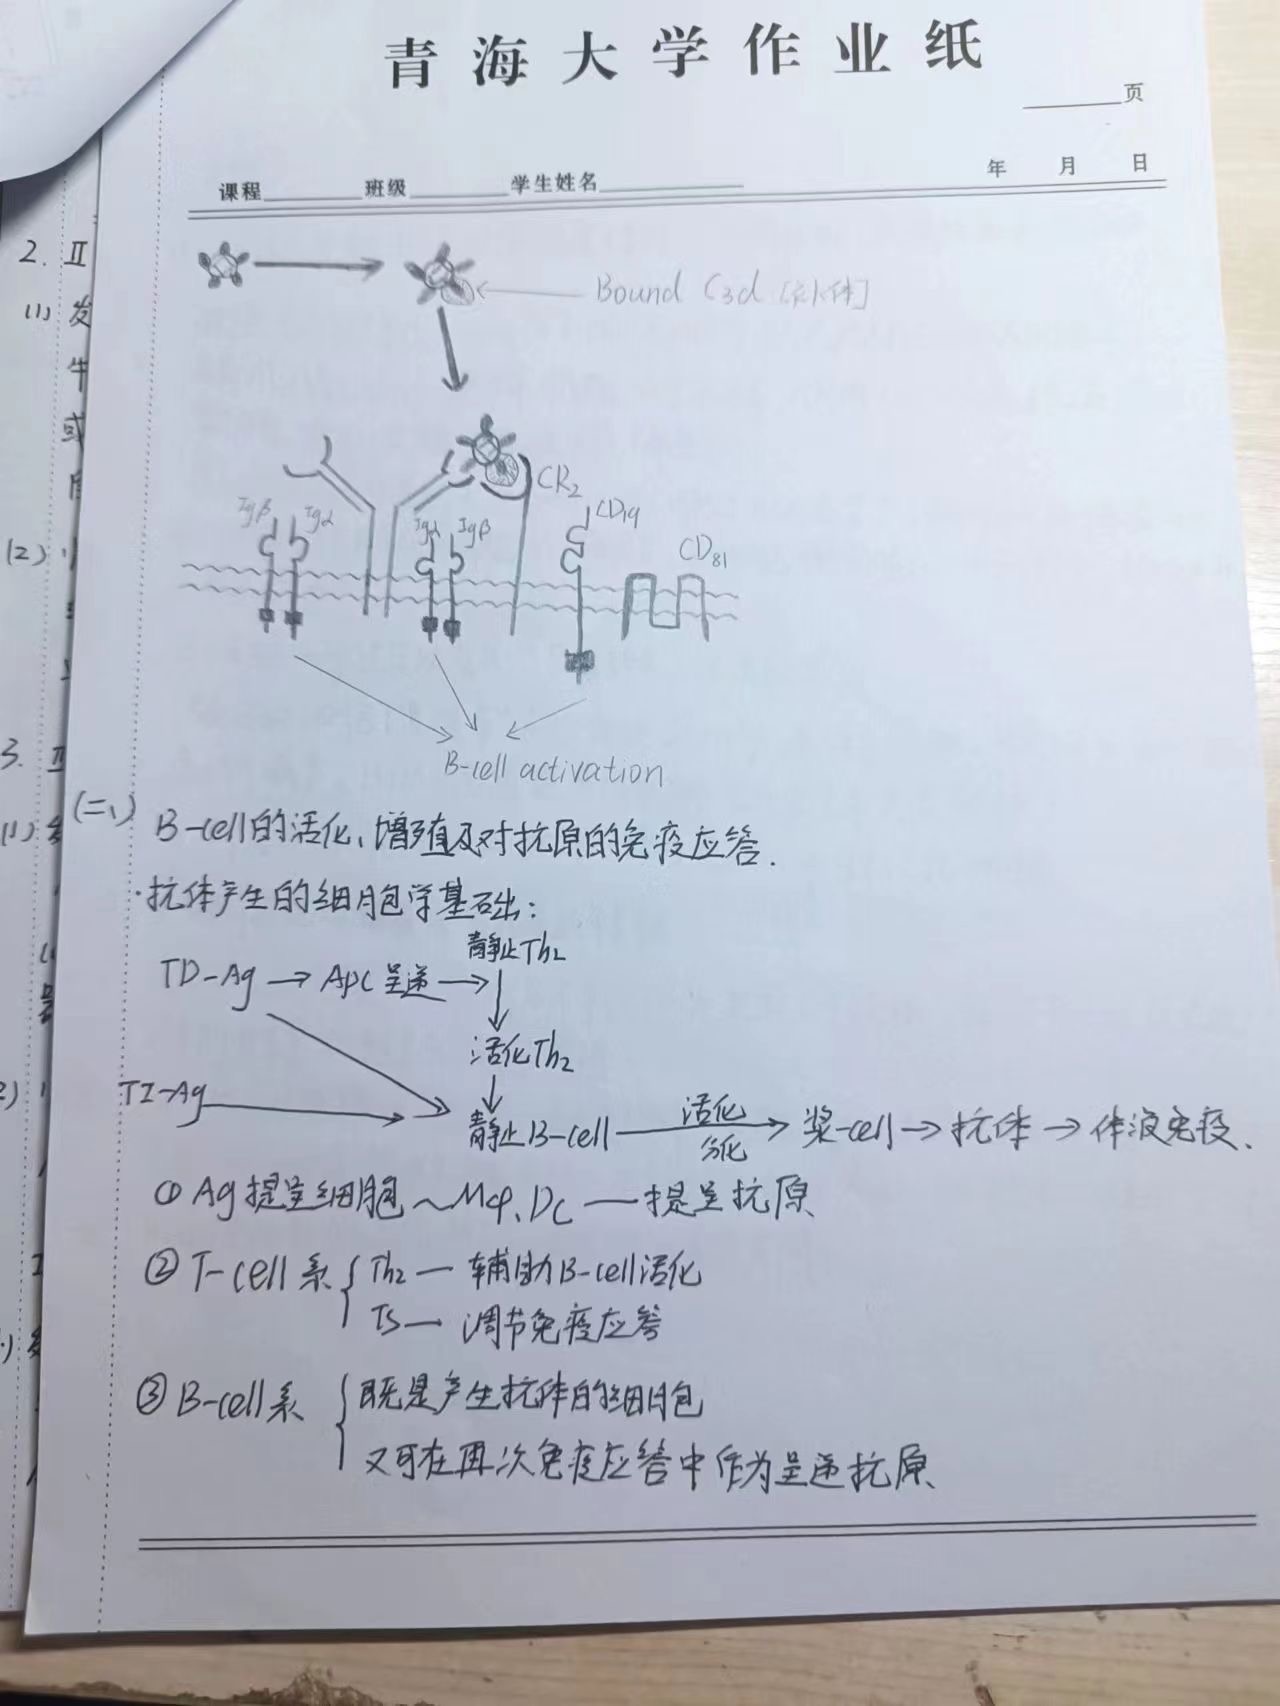 青海大学作业纸
页
课程 班级 学生姓名 年 月 日
Bound C3d [补体]
CR2
Igβ Igα Igα Igβ CD19
CD81
B-cell activation
(二、) B-cell的活化、增殖及对抗原的免疫应答.
·抗体产生的细胞学基础:
静止Th2
TD-Ag → APC呈递 →
活化Th2
TI-Ag
静止B-cell 活化 分化 → 浆-cell → 抗体 → 体液免疫.
① Ag提呈细胞~Mφ、DC — 提呈抗原
② T-cell系 { Th2 — 辅助B-cell活化
Ts — 调节免疫应答
③ B-cell系 { 既是产生抗体的细胞
又可在再次免疫应答中作为呈递抗原
2. Ⅱ
(1) 发
牛
或
(2)
3. Ⅱ
(1)